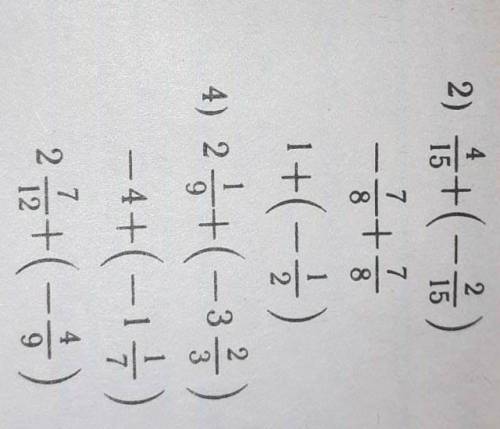 2) 4/15 + (− 2/15)
− 7/8 + 7/8
1 + (− 1/2)
4) 2 1/9 + (− 3 2/3)
− 4 + (− 1 1/7)
2 7/12 + (− 4/9)